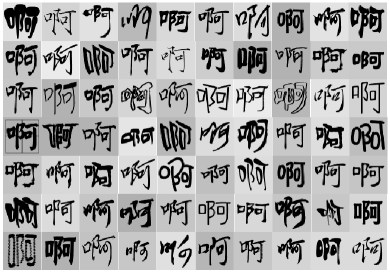 啊啊啊啊啊啊啊啊啊啊
啊啊啊啊啊啊啊啊啊啊
啊啊啊啊啊啊啊啊啊啊
啊啊啊啊啊啊啊啊啊啊
啊啊啊啊啊啊啊啊啊啊
啊啊啊啊啊啊啊啊啊啊
啊啊啊啊啊啊啊啊啊啊